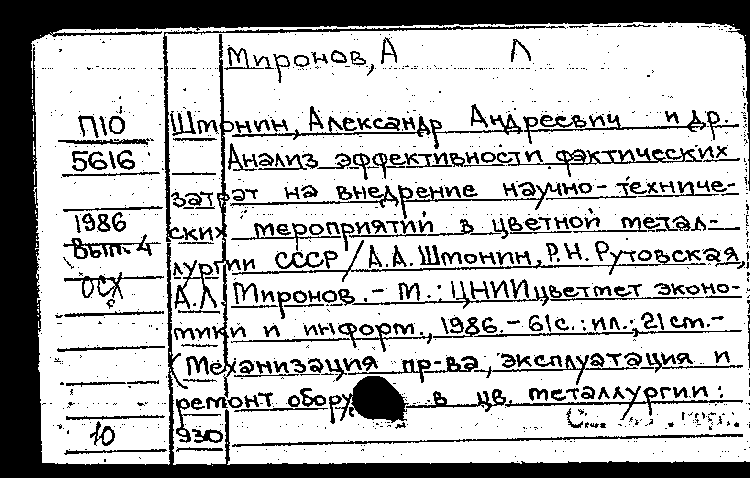 Миронов, А Л
П10
5616
1986
Вып. 4
ОСХ
Штонин, Александр Андреевич и др.
Анализ эффективности фактических
затрат на внедрение научно-техниче-
ских мероприятий в цветной метал-
лургии СССР / А.А. Штонин, Р.Н. Рутовская,
А.Л. Миронов. - М.: ЦНИИцветмет эконо-
мики и информ., 1986. - 61с.: ил.; 21см. -
(Механизация пр-ва, эксплуатация и
ремонт обору в цв. металлургии:
10 930